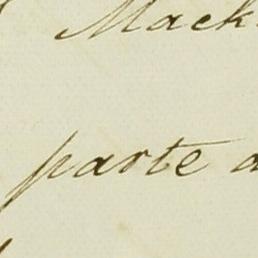 Mack
parte a